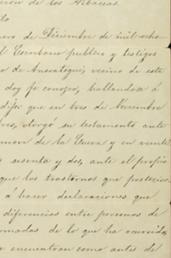 cion de los Albaceas
to
nero de Diciembre de mil ocho
el Escribano publico y testigos
o de Anzoategui, vecino de este
doy fe conozco, hallandose á
dijo: que en tres de Noviembre
otorgó su testamento ante
de la Cueva y en veinte
y sesenta y dos, ante el propio
que los trastornos que posterior
á hacer declaraciones que
diferencias entre personas de
rmadas de lo que ha ocurrido
encuentran como antes de